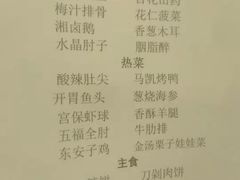 梅汁排骨 花仁菠菜
湘卤鹅 香葱木耳
水晶肘子 胭脂醉
热菜
酸辣肚尖 马凯烤鸭
开胃鱼头 葱烧海参
宫保虾球 香酥羊腿
五福全肘 牛肋排
东安子鸡 金汤栗子娃娃菜
主食
刀剁肉饼